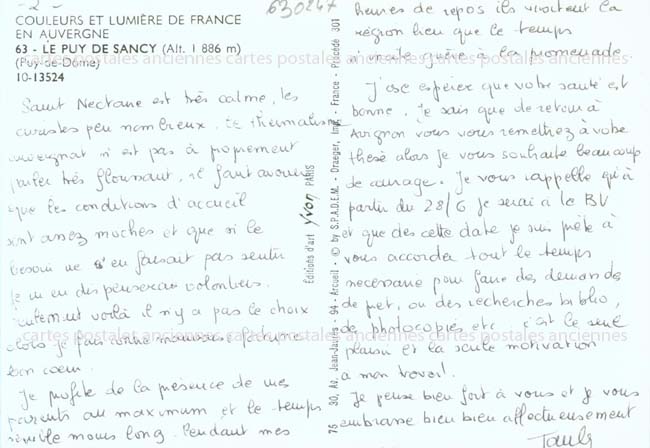 - 2 -
630247
COULEURS ET LUMIÈRE DE FRANCE
EN AUVERGNE
63 - LE PUY DE SANCY (Alt. 1 886 m)
(Puy-de-Dôme)
10-13524
Saint Nectaire est très calme, les
curistes peu nombreux. Le thermalisme
auvergnat n'est pas à proprement
parler très florissant, il faut avouer
que les conditions d'accueil
sont assez moches et que si le
besoin ne s'en faisait pas sentir
je m'en dispenserais volontiers.
Seulement voilà il n'y a pas le choix
alors je fais contre mauvaise fortune
bon coeur.
Je profite de la présence de mes
parents au maximum et le temps
semble moins long. Pendant mes
Editions d'art Yvon PARIS
75 30, Av. Jean-Jaurès - 94 - Arcueil - © by S.P.A.D.E.M. - Draeger, Imp. - France - Procédé 301
heures de repos ils visitent la
région bien que le temps
n'incite guère à la promenade.
J'ose espérer que votre santé est
bonne, je sais que de retour à
Avignon vous vous remettrez à votre
thèse alors je vous souhaite beaucoup
de courage. Je vous rappelle qu'à
partir du 28/6 je serai à la BU
et que dès cette date je suis prête à
vous accorder tout le temps
nécessaire pour faire des demandes
de pret, ou des recherches biblio,
de photocopies, etc... c'est le seul
plaisir et la seule motivation
à mon travail.
Je pense bien fort à vous et je vous
embrasse bien bien affectueusement
cartes postales anciennes cartes postales anciennes cartes postales anciennes
cartes postales anciennes cartes postales anciennes cartes postales anciennes